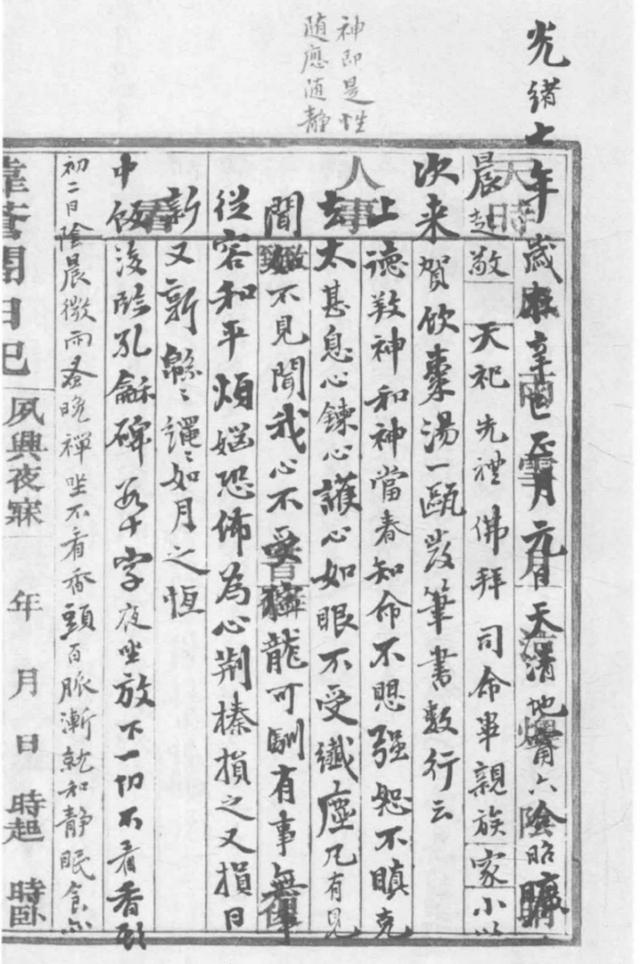 神即是性
随應随静
光緒七年歲在辛巳正月元日天清地甯六陰昭曠
晨起敬天祀先禮佛拜司命畢親族家小以
次来賀飲棗湯一甌发筆書数行云
上德敦神和神當春知命不思强恕不瞋克
去太甚息心鍊心護心如眼不受纖塵凡有見
聞如不見聞我心不受獰龍可馴有事無事
從容和平煩嫍恐怖為心荆榛損之又損日
新又新緜緜繩繩如月之恆
中飯後臨孔龢碑若干字夜坐放下一切不看香頭
初二日陰晨微雨蚤晚禪坐不看香頭百脈漸就和静眠食亦
日記
夙興夜寐 年 月 日 時起 時卧